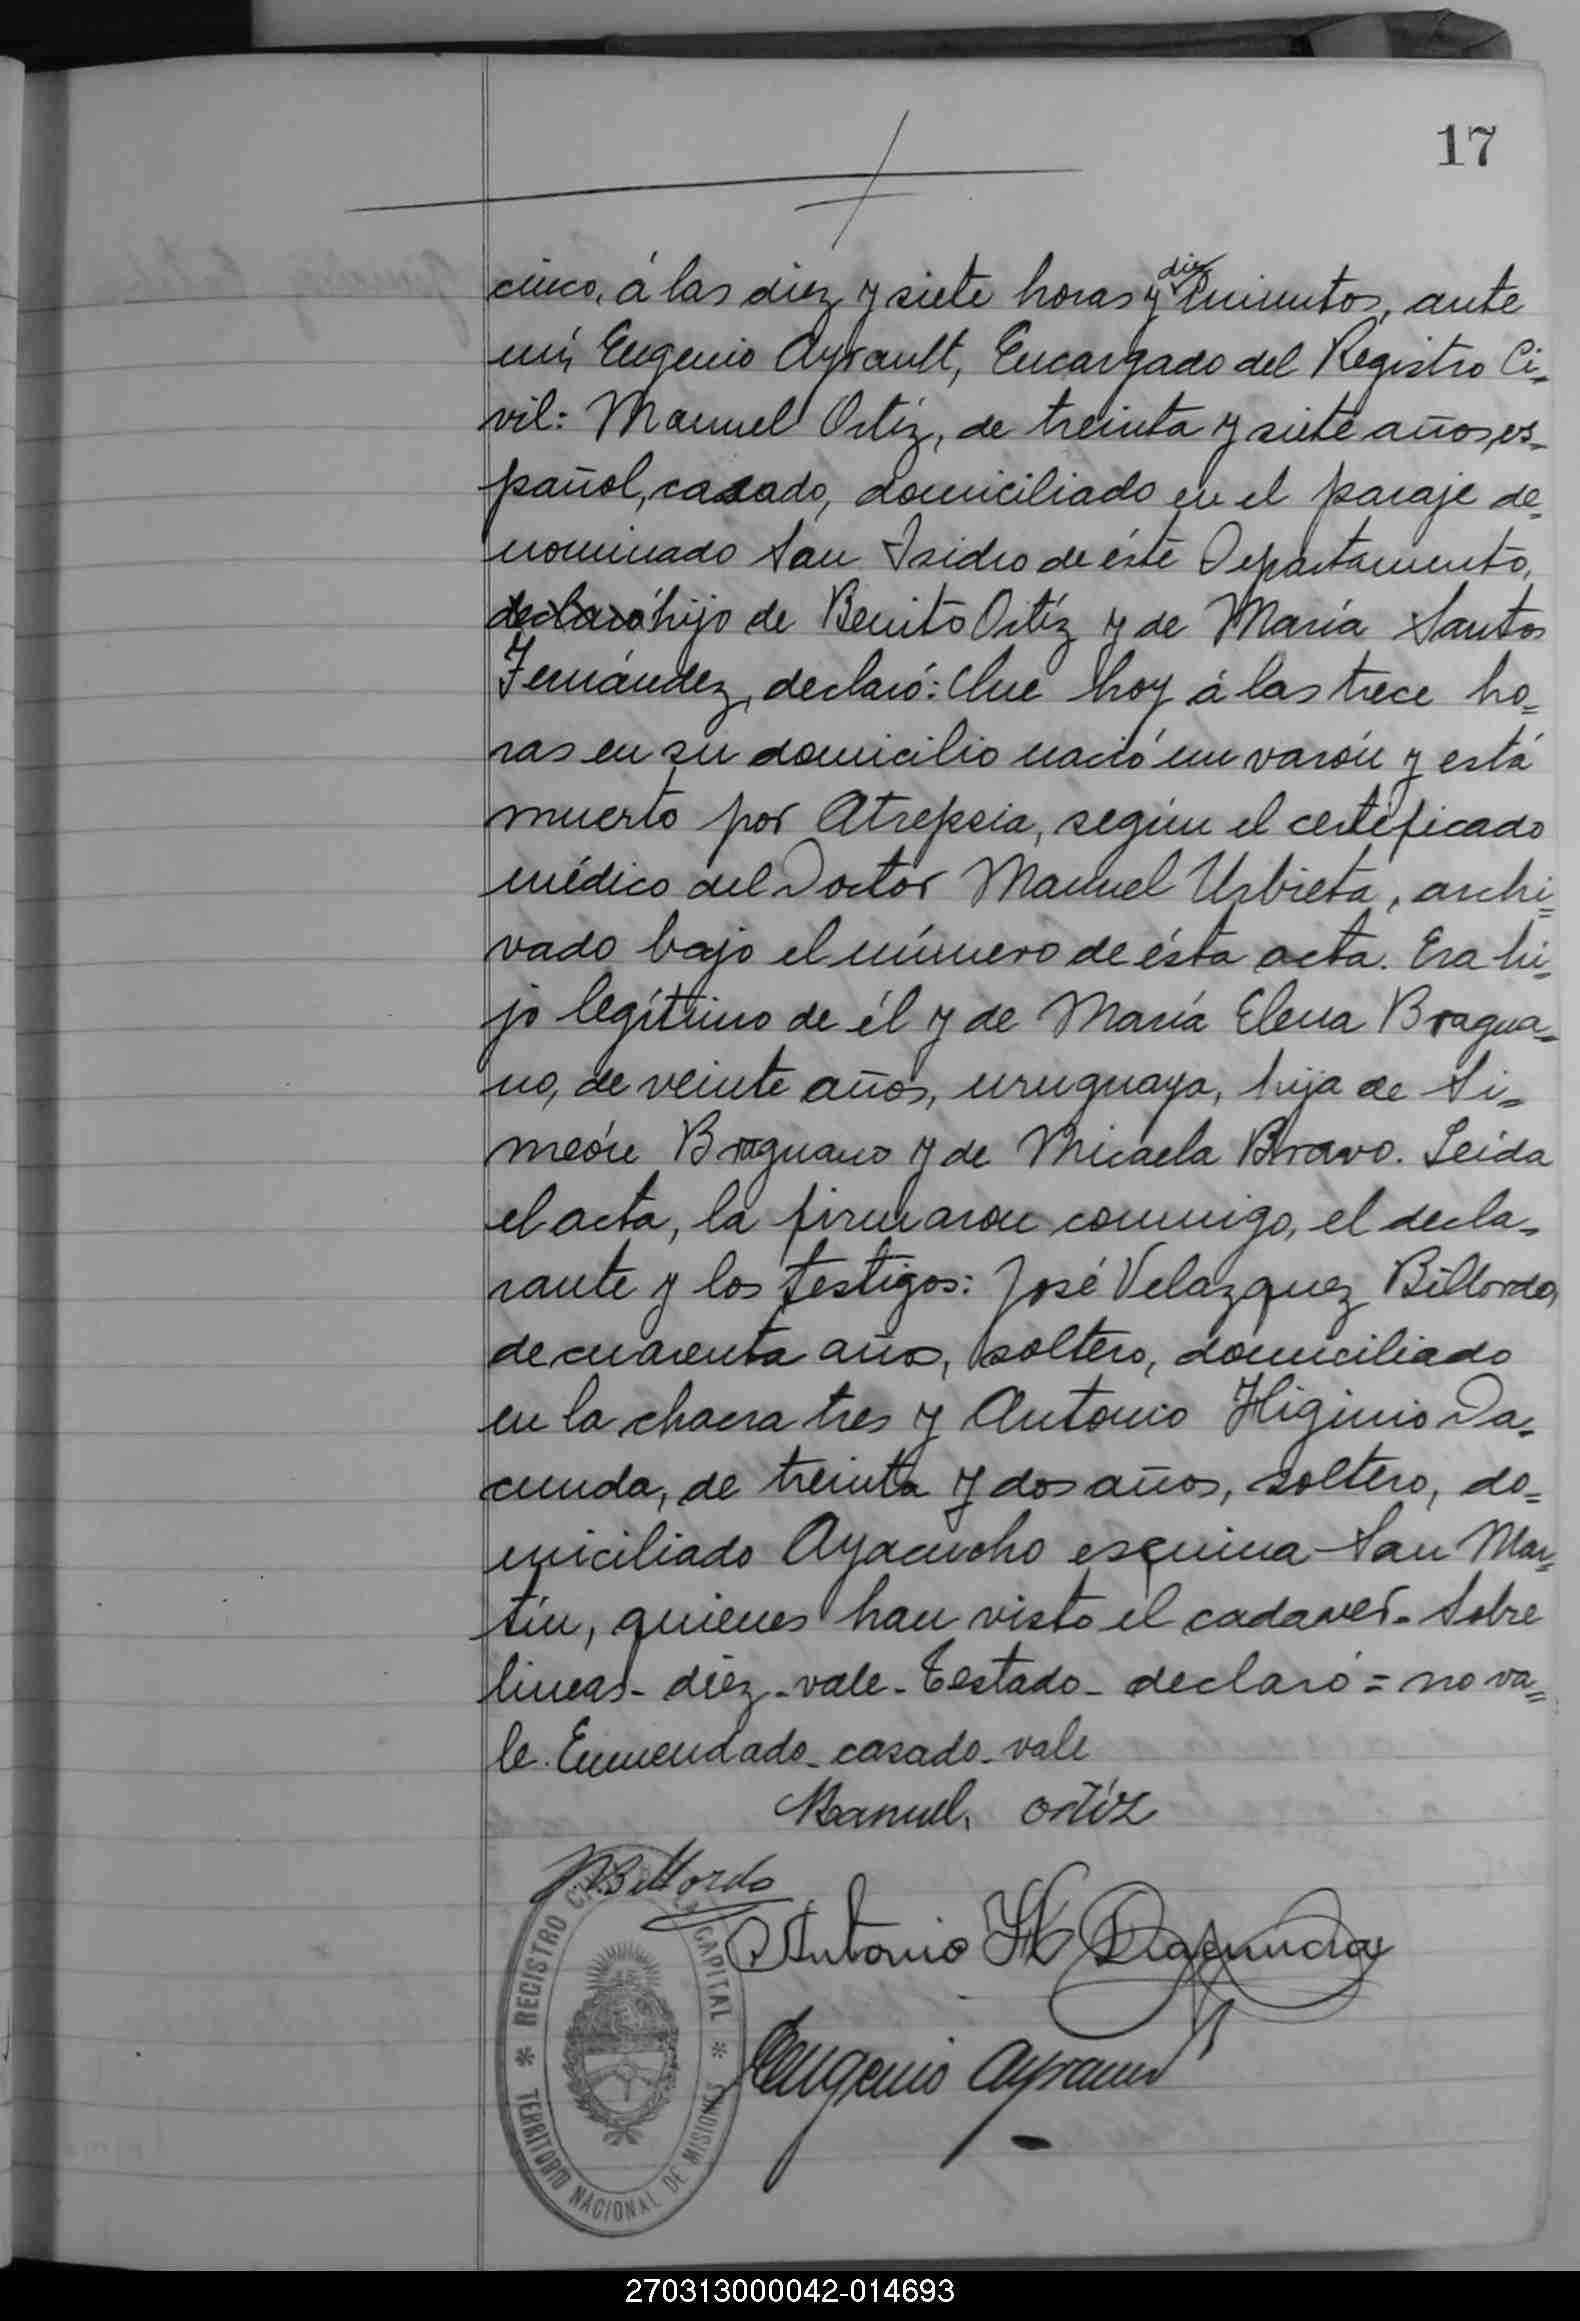 17
cinco, á las diez y siete horas y diez minutos, ante
mí, Eugenio Ayrault, Encargado del Registro Ci-
vil: Manuel Ortíz, de treinta y siete años, es-
pañol, casado, domiciliado en el paraje de-
nominado San Isidro de éste Departamento,
declaró hijo de Benito Ortíz y de María Santos
Fernández, declaró: Que hoy á las trece ho-
ras en su domicilio nació un varón y está
muerto por Atrepsia, según el certificado
médico del Doctor Manuel Urbieta, archi-
vado bajo el número de ésta acta. Era hi-
jo legítimo de él y de María Elena Bragua-
no, de veinte años, uruguaya, hija de Si-
meón Braguano y de Micaela Bravo. Leida
el acta, la firmaron conmigo, el decla-
rante y los testigos: José Velazquez Billordo,
de cuarenta años, soltero, domiciliado
en la chacra tres y Antonio Higinio Da-
cunda, de treinta y dos años, soltero, do-
miciliado Ayacucho esquina San Mar-
tín, quienes han visto el cadaver. Sobre
lineas - diez - vale - Testado - declaró = no va-
le. Enmendado - casado - vale
Manuel Ortíz
JVBillordo
Antonio H Dacunda
Eugenio Ayrault
REGISTRO CIVIL CAPITAL
TERRITORIO NACIONAL DE MISIONES
270313000042-014693